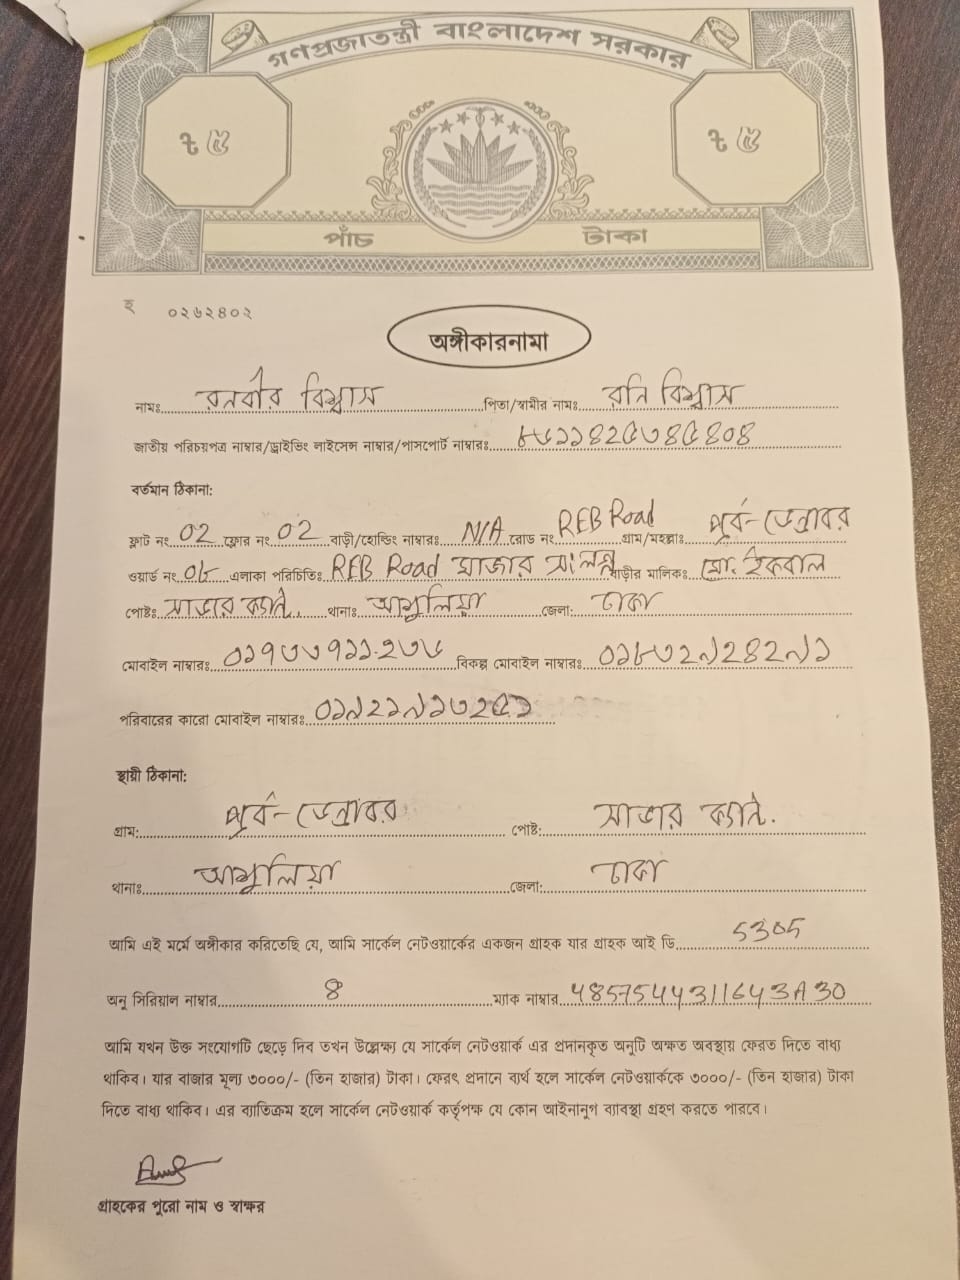 গণপ্রজাতন্ত্রী বাংলাদেশ সরকার
৳ ৫ ৳ ৫
পাঁচ টাকা
হ ০২৬২৪০২
অঙ্গীকারনামা
নামঃ রনবীর বিশ্বাস পিতা/স্বামীর নামঃ রনি বিশ্বাস
জাতীয় পরিচয়পত্র নাম্বার/ড্রাইভিং লাইসেন্স নাম্বার/পাসপোর্ট নাম্বারঃ ৮৬১১৪২৫৩৪৫৪০৪
বর্তমান ঠিকানা:
ফ্লাট নং 02 ফ্লোর নং 02 বাড়ী/হোল্ডিং নাম্বারঃ N/A রোড নং REB Road গ্রাম/মহল্লাঃ পূর্ব-ডেন্ডাবর
ওয়ার্ড নং ০৮ এলাকা পরিচিতিঃ REB Road মাজার সংলগ্ন বাড়ীর মালিকঃ মো. ইকবাল
পোষ্টঃ সাভার ক্যান্ট. থানাঃ আশুলিয়া জেলা: ঢাকা
মোবাইল নাম্বারঃ ০১৭৩৩৭১১২৩৬ বিকল্প মোবাইল নাম্বারঃ ০১৮৩২৯২৪২৯১
পরিবারের কারো মোবাইল নাম্বারঃ ০১৯২১৯১৩২৫১
স্থায়ী ঠিকানা:
গ্রাম: পূর্ব-ডেন্ডাবর পোষ্ট: সাভার ক্যান্ট.
থানাঃ আশুলিয়া জেলা: ঢাকা
আমি এই মর্মে অঙ্গীকার করিতেছি যে, আমি সার্কেল নেটওয়ার্কের একজন গ্রাহক যার গ্রাহক আই ডি 5305
অনু সিরিয়াল নাম্বার 8 ম্যাক নাম্বার 4857544311643A30
আমি যখন উক্ত সংযোগটি ছেড়ে দিব তখন উল্লেক্ষ্য যে সার্কেল নেটওয়ার্ক এর প্রদানকৃত অনুটি অক্ষত অবস্থায় ফেরত দিতে বাধ্য
থাকিব। যার বাজার মূল্য ৩০০০/- (তিন হাজার) টাকা। ফেরৎ প্রদানে ব্যর্থ হলে সার্কেল নেটওয়ার্ককে ৩০০০/- (তিন হাজার) টাকা
দিতে বাধ্য থাকিব। এর ব্যতিক্রম হলে সার্কেল নেটওয়ার্ক কর্তৃপক্ষ যে কোন আইনানুগ ব্যবস্থা গ্রহণ করতে পারবে।
গ্রাহকের পুরো নাম ও স্বাক্ষর